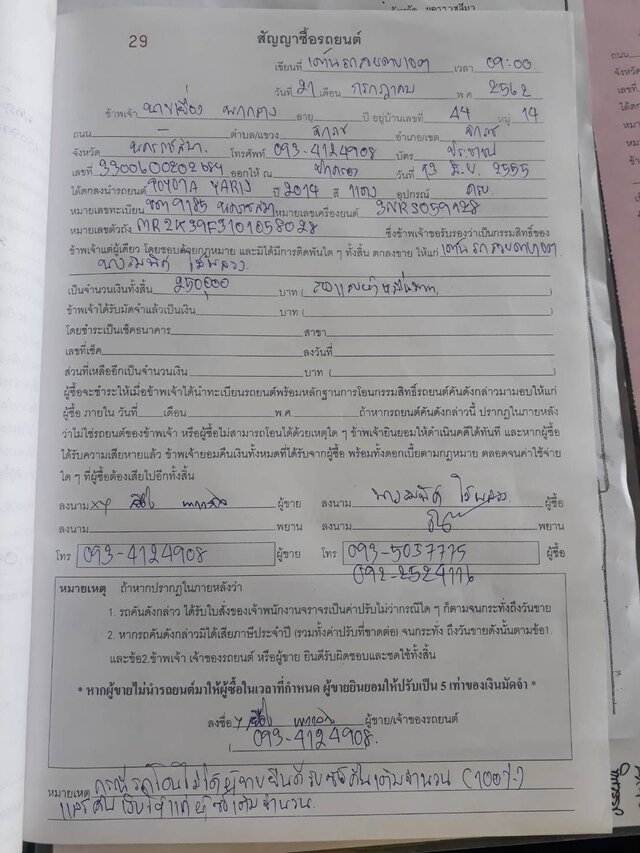 29
สัญญาซื้อรถยนต์
เขียนที่ เต็นท์รถ เวลา 09:00
วันที่ 21 เดือน กรกฎาคม พ.ศ. 2562
ข้าพเจ้า อายุ ปี อยู่บ้านเลขที่ 44 หมู่ 14
ถนน ตำบล/แขวง อำเภอ/เขต
จังหวัด นครราชสีมา โทรศัพท์ 093-4124908 บัตร ประชาชน
เลขที่ ออกให้ ณ วันที่ 13 2555
ได้ตกลงนำรถยนต์ TOYOTA YARIS ปี 2014 สี แดง อุปกรณ์ ครบ
หมายเลขทะเบียน 9185 นครราชสีมา หมายเลขเครื่องยนต์
หมายเลขตัวถัง ซึ่งข้าพเจ้าขอรับรองว่าเป็นกรรมสิทธิ์ของ
ข้าพเจ้าแต่ผู้เดียว โดยชอบด้วยกฎหมาย และมิได้มีการติดพันใด ๆ ทั้งสิ้น ตกลงขาย ให้แก่ เต็นท์รถ
เป็นจำนวนเงินทั้งสิ้น 250,000 บาท ( สองแสนห้าหมื่นบาท
ข้าพเจ้าได้รับมัดจำแล้วเป็นเงิน บาท (
โดยชำระเป็นเช็คธนาคาร สาขา
เลขที่เช็ค ลงวันที่
ส่วนที่เหลืออีกเป็นจำนวนเงิน บาท (
ผู้ซื้อจะชำระให้เมื่อข้าพเจ้าได้นำทะเบียนรถยนต์พร้อมหลักฐานการโอนกรรมสิทธิ์รถยนต์คันดังกล่าวมามอบให้แก่
ผู้ซื้อ ภายใน วันที่ เดือน พ.ศ. ถ้าหากรถยนต์คันดังกล่าวนี้ ปรากฏในภายหลัง
ว่าไม่ใช่รถยนต์ของข้าพเจ้า หรือผู้ซื้อไม่สามารถโอนได้ด้วยเหตุใด ๆ ข้าพเจ้ายินยอมให้ดำเนินคดีได้ทันที และหากผู้ซื้อ
ได้รับความเสียหายแล้ว ข้าพเจ้ายอมคืนเงินทั้งหมดที่ได้รับจากผู้ซื้อ พร้อมทั้งดอกเบี้ยตามกฎหมาย ตลอดจนค่าใช้จ่าย
ใด ๆ ที่ผู้ซื้อต้องเสียไปอีกทั้งสิ้น
ลงนาม ผู้ขาย ลงนาม ผู้ซื้อ
ลงนาม พยาน ลงนาม พยาน
โทร 093-4124908 ผู้ขาย โทร 093-5037775 ผู้ซื้อ
092-2524116
หมายเหตุ ถ้าหากปรากฏในภายหลังว่า
1. รถคันดังกล่าว ได้รับใบสั่งของเจ้าพนักงานจราจรเป็นค่าปรับไม่ว่ากรณีใด ๆ ก็ตามจนกระทั่งถึงวันขาย
2. หากรถคันดังกล่าวมิได้เสียภาษีประจำปี (รวมทั้งค่าปรับที่ขาดต่อ) จนกระทั่ง ถึงวันขายดังนั้นตามข้อ1.
และข้อ2.ข้าพเจ้า เจ้าของรถยนต์ หรือผู้ขาย ยินดีรับผิดชอบและชดใช้ทั้งสิ้น
* หากผู้ขายไม่นำรถยนต์มาให้ผู้ซื้อในเวลาที่กำหนด ผู้ขายยินยอมให้ปรับเป็น 5 เท่าของเงินมัดจำ *
ลงชื่อ ผู้ขาย/เจ้าของรถยนต์
( 093-4124908
หมายเหตุ กรณีรถโอนไม่ได้ผู้ขายยินดีรับซื้อคืนเต็มจำนวน (100%)
และคืนเงินให้แก่ผู้ซื้อเต็มจำนวน